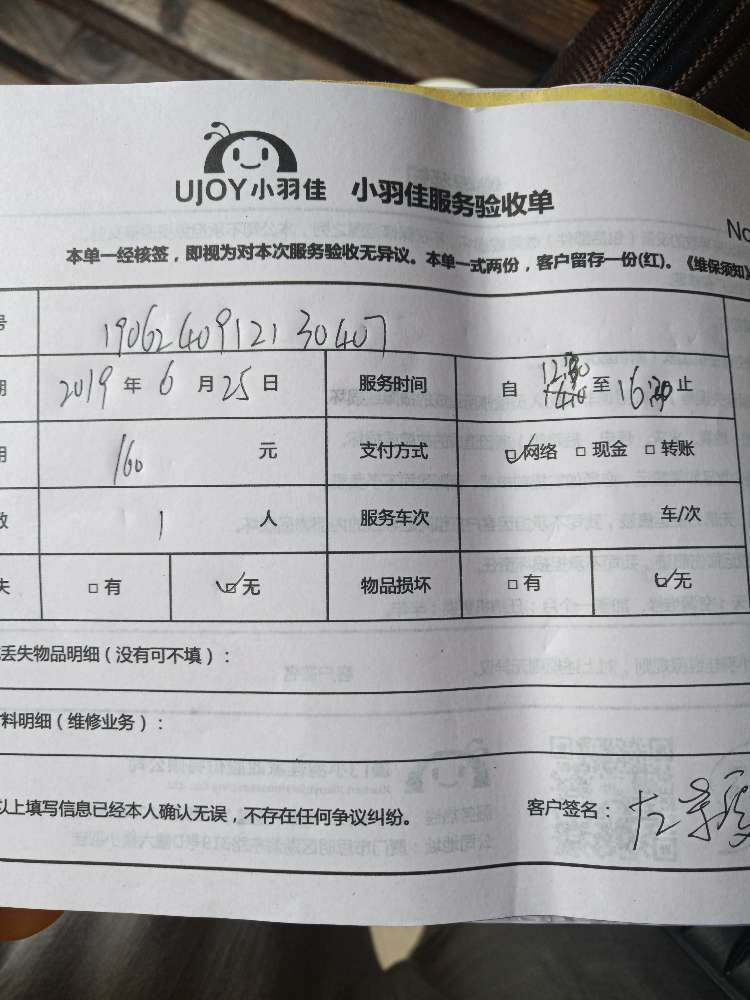 UJOY小羽佳 小羽佳服务验收单
No
本单一经核签，即视为对本次服务验收无异议。本单一式两份，客户留存一份(红)。《维保须知》
号 19062409121 30407
期 2019 年 6 月 25 日 服务时间 自 12:30 至 16:30 止
用 160 元 支付方式 ☑网络 □现金 □转账
数 1 人 服务车次 车/次
失 □有 ☑无 物品损坏 □有 ☑无
丢失物品明细（没有可不填）：
料明细（维修业务）：
以上填写信息已经本人确认无误，不存在任何争议纠纷。 客户签名：